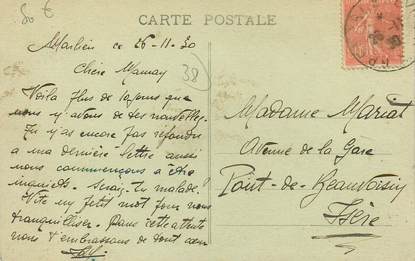 50 €
CARTE POSTALE
ce 26-11-30
38
Chère Mamay
Voilà plus de 10 jours que
nous n'y avons de des nouvelles.
Tu n'y as encore pas répondre
a ma dernière lettre aussi
nous commençons à être
inquiets. Serais-tu malade.
Vite un petit mot pour nous
tranquilliser. Dans cette attente
nous t'embrassons de tout cœur
Madame Mariat
Avenue de la Gare
Pont-de-Beauvoisin
Isère